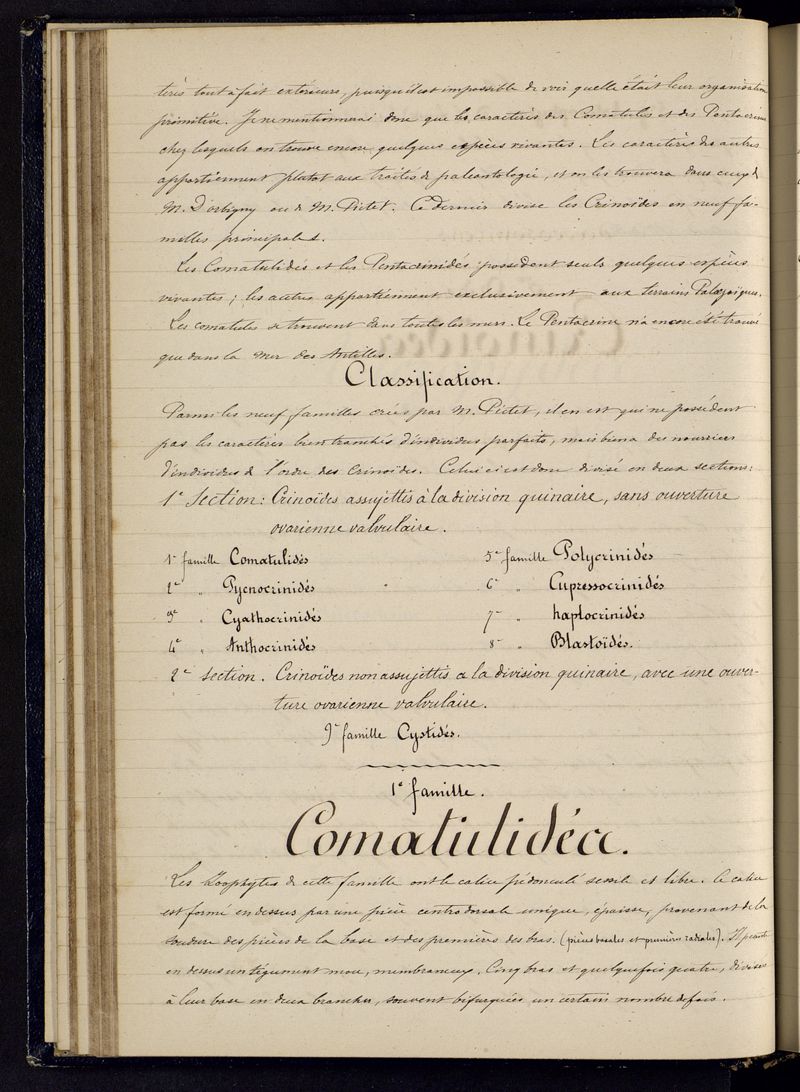 térés tout à fait extérieurs, puisqu'il est impossible de voir quelle était leur organisation
primitive. Je ne mentionnerai donc que les caractères des Comatules et des Pentacrines
chez lesquels on trouve encore quelques espèces vivantes. Les caractères des autres
appartiennent plutôt aux traités de paléontologie, et on les trouvera dans ceux de
M. D'orbigny ou de M. Pictet. Ce dernier divise les Crinoïdes en neuf fa-
milles principales.
Les Comatulidés et les Pentacrinidés possèdent seuls quelques espèces
vivantes ; les autres appartiennent exclusivement aux terrains Palæzoïques.
Les comatules se trouvent dans toutes les mers. Le Pentacrine n'a encore été trouvé
que dans la mer des Antilles.
Classification.
Parmi les neuf familles créés par M. Pictet, il en est qui ne possèdent
pas les caractères bien tranchés d'individus parfaits, mais bien a des nourrices
d'individus de l'ordre des Crinoïdes. Celui ci est donc divisé en deux sections :
1e Section : Crinoïdes assujettis à la division quinaire, sans ouverture
ovarienne valvulaire.
1re famille Comatulidés 5e famille Polycrinidés
2e " Pycnocrinidés 6e " Cupressocrinidés
3e " Cyathocrinidés 7e " haplocrinidés
4e " Anthocrinidés 8e " Blastoïdés.
2e section. Crinoïdes non assujettis a la division quinaire, avec une ouver-
ture ovarienne valvulaire.
9e famille Cystidés.
1e famille.
Comatulideæ.
Les Zoophytes de cette famille ont le calice pédonculé sessile et libre. Ce calice
est formé en dessus par une pièce centrodorsale unique, épaisse, provenant de la
soudure des pièces de la base et des premières des bras. (pièces basales et premières radiales). Il présente
en dessus un tégument mou, membraneux. Cinq bras et quelquefois quatre, divisés
à leur base en deux branches, souvent bifurquées un certain nombre de fois.